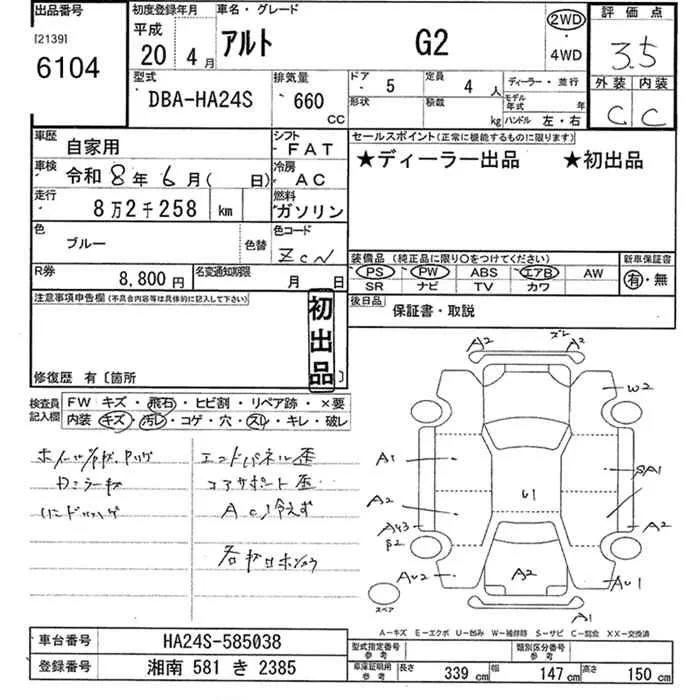 出品番号
[2139]
6104
初度登録年月
平成
20 4月
車名・グレード
アルト G2
2WD
・
4WD
評価点
3.5
外装 内装
C C
型式
DBA-HA24S
排気量
660
CC
ドア 5
定員 4 人
ディーラー・並行
形状
積載 kg
モデル年式 年
ハンドル 左・右
車歴 自家用
シフト FAT
車検 令和 8年 6月( 日)
冷房 AC
走行 8万2千258 km
燃料 ガソリン
色 ブルー
色替
色コード ZCN
R券 8,800円
名変通知期限 月 日
セールスポイント(正常に機能するものに限ります)
★ディーラー出品 ★初出品
装備品 (純正品に限り○をつけてください)
PS PW ABS エアB AW
SR ナビ TV カワ
新車保証書
有・無
後日品 保証書・取説
注意事項申告欄(不具合内容等は具体的に記入して下さい)
初出品
修復歴 有〔箇所 〕
検査員記入欄
FW キズ・飛石・ヒビ割・リペア跡・×要
内装 キズ・汚レ・コゲ・穴・スレ・キレ・破レ
エンドパネル歪
コアサポート歪
ACノ冷えず
A2 ズレ A2
W2
A1
SA1
U1
A2
A2
AU2
A2
AU1
A1
スペア
A−キズ E−エクボ U−凹み W−補修跡 S−サビ C−腐食 XX−交換済
車台番号 HA24S-585038
登録番号 湘南 581 き 2385
型式指定番号
参考
類別区分番号
参考
車庫証明用
参考
長さ 339 cm
幅 147 cm
高さ 150 cm